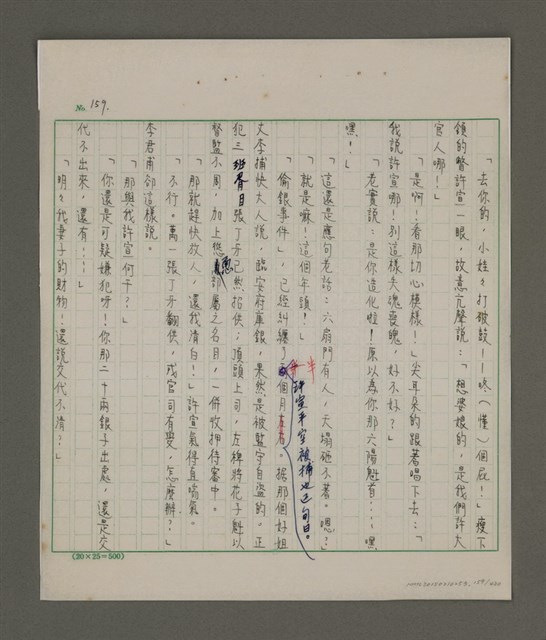 No. 159.
「去你的，小娃々打破鼓——咚（懂）個屁！」瘦下
頷的瞥許宣一眼，故意亢聲說：「想婆娘的，是我們許大
官人哪！」
「是啊！看那切心模樣！」尖耳朵的跟著唱下去：「
我說許宣哪！別這樣失魂喪魄，好不好？」
「老實說：是你造化啦！原以為你那六陽魁首……嘿
嘿！」
「這還是應句老話：六扇門有人，天塌砸不著。嗯？」
「就是嘛！這個年頭！」
「偷銀事件」，已經糾纏了半個月。据那個好姐
許宣平空被捕也已旬日。
丈李捕快大人說，臨安府庫銀，果然是被監守自盜的。正
犯三班眷日張丁牙已然招供；頂頭上司，左稗將花子魁以
督監不周，加上慫恿部屬之名目，一併收押待審中。
「那就趕快放人，還我清白！」許宣氣得直喘氣。
「不行。萬一張丁牙翻供，或官司有變，怎麼辦？」
李君甫卻這樣說。
「那與我許宣何干？」
「你還是可疑嫌犯呀！你那二十兩銀子出處，還是交
代不出來，還有……」
「明々我妻子的財物！還說交代不清？」
(20×25=500)